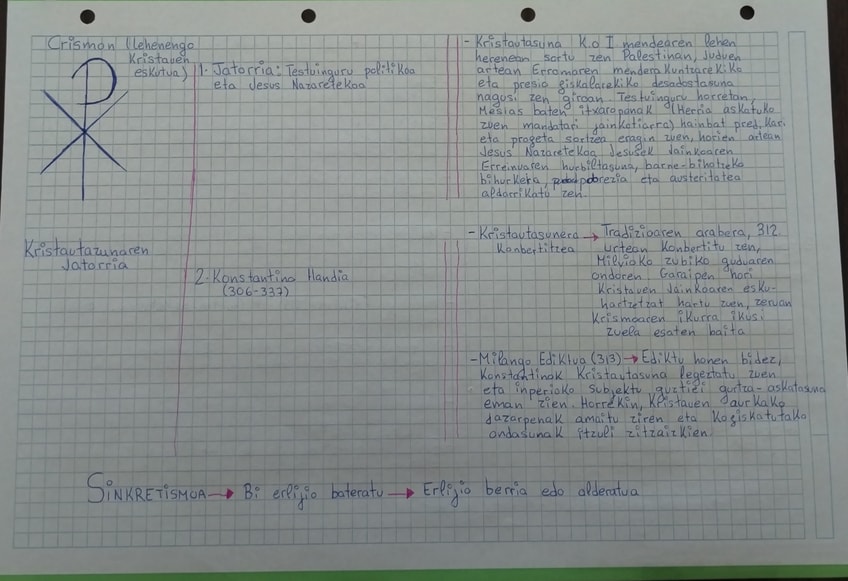 Crismon (Lehenengo
Kristauen
eskutua)
Kristautazunaren
Jatorria
1. Jatorria: Testuinguru politikoa
eta Jesus Nazaretekoa
2. Konstantino Handia
(306-337)
- Kristautasuna K.o I mendearen lehen
herenean sortu zen Palestinan, Juduen
artean Erromaren menderakuntzarekiko
eta presio fiskalarekiko desadostasuna
nagusi zen giroan. Testuinguru horretan,
Mesias baten itxaropenak (Herria askatuko
zuen mandatari jainkotiarra) hainbat predikari
eta profeta sortzea eragin zuen, horien artean
Jesus Nazaretekoa. Jesusek Jainkoaren
Erreinuaren hurbiltasuna, barne-bihotzeko
bihurketa, pobrezia eta austeritatea
aldarrikatu zen.
- Kristautasunera → Tradizioaren arabera, 312
Konbertitzea urtean Konbertitu zen,
Milvioko zubiko guduaren
ondoren. Garaipen hori
Kristauen Jainkoaren esku-
hartzetzat hartu zuen, zeruan
Krismoaren ikurra ikusi
zuela esaten baita
- Milango Ediktua (313) → Ediktu honen bidez,
Konstantinok Kristautasuna legeztatu zuen
eta inperioko subjektu guztiei gurtza-askatasuna
eman zien. Horrekin, Kristauen aurkako
Jazarpenak amaitu ziren eta Kofiskatutako
ondasunak itzuli zitzaizkien.
SiNKRETiSMOA → Bi erlijio bateratu → Erlijio berria edo alderatua